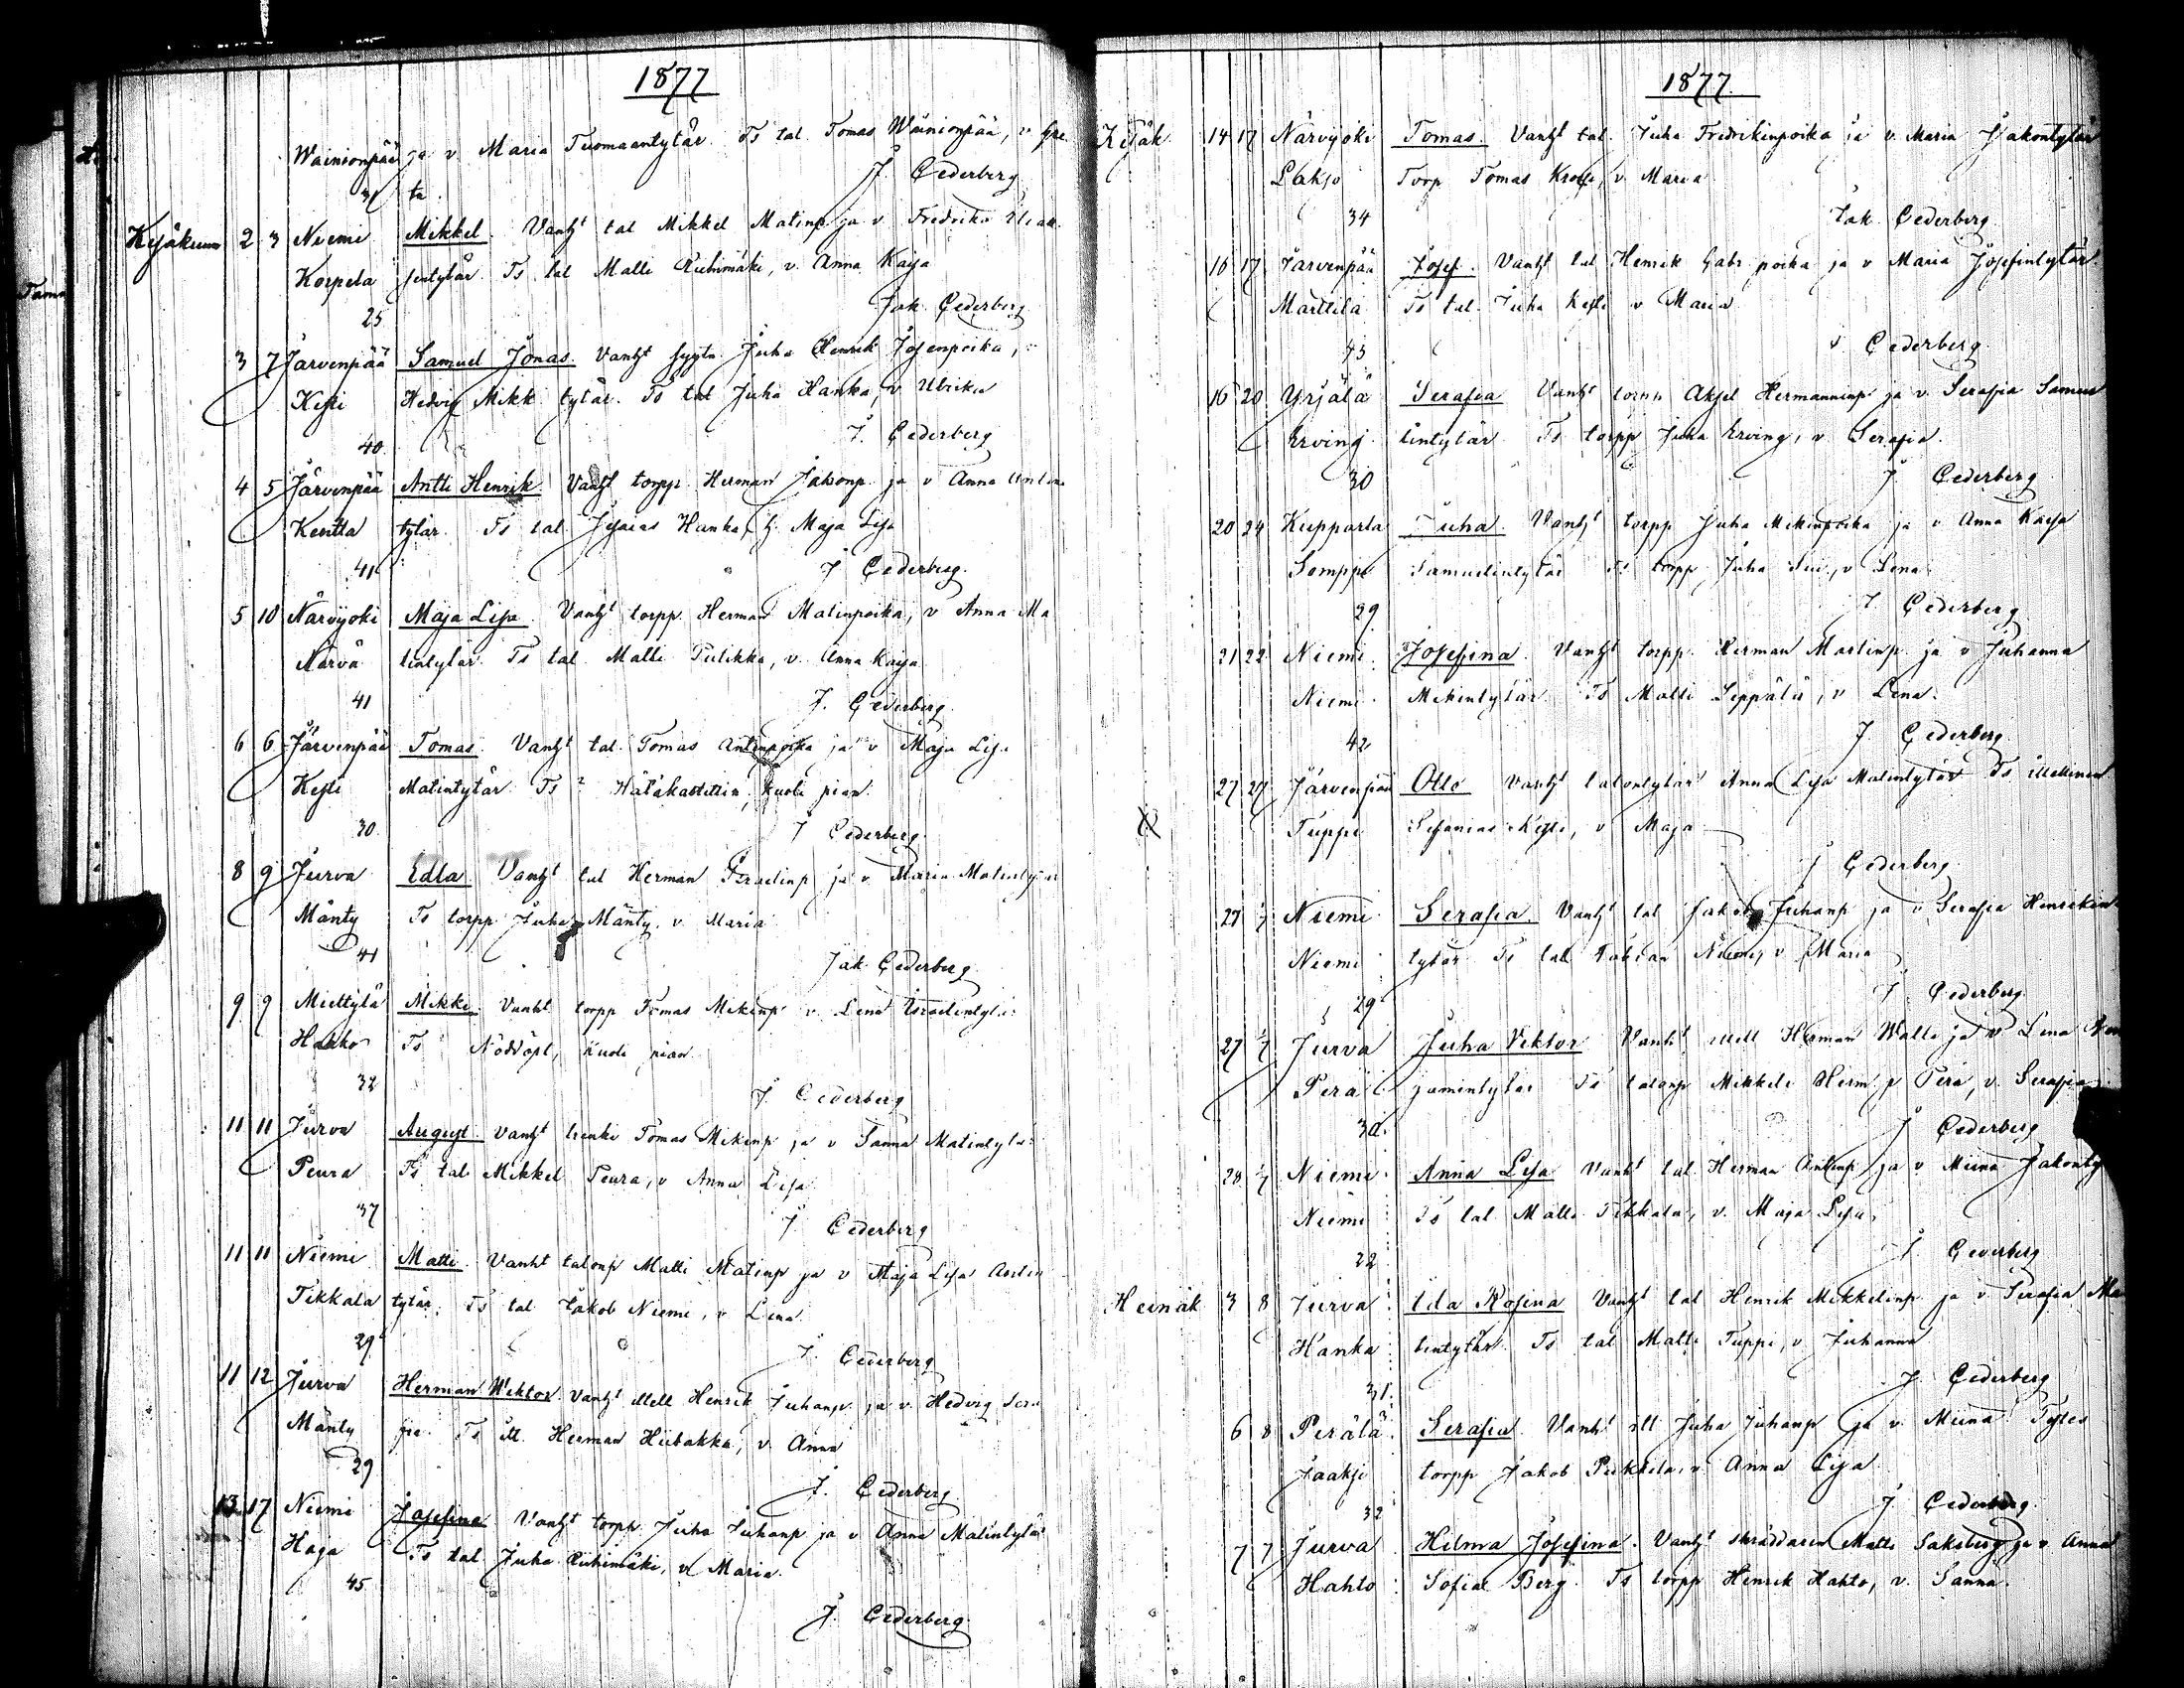 1877
Wainionpää ja v Maria Tuomaantytär. Ts tal. Tomas Wainionpää, v Gre
31 ta.
J. Cederberg
Kesäkuun 2 3 Niemi Mikkel. Vanht tal Mikkel Matinp ja v Fredrika
Korpela tytär. Ts tal Matti Riihimäki, v. Anna Kaisa
25 Jak Cederberg
3 7 Järvenpää Samuel Jonas. Vanht Juha Henrik Josenpoika,
Kesti Hedvig Mikk tytär. Ts tal Juha Hanka, v Ulrika
40 J. Cederberg
4 5 Järvenpää Antti Henrik. Vanht torpp. Herman Jakonp ja v Anna Antin
Kenttä tytär. Ts tal Jesaias Hanka, h. Maja Lisa
41 J Cederberg.
5 10 Närvijoki Maja Lisa. Vanht torpp. Herman Matinpoika, v Anna Ma
Närvä tintytär. Ts tal. Matti Pulikka, v. Anna Kaisa
41 J. Cederberg.
6 6 Järvenpää Tomas. Vanht tal. Tomas Antinpoika ja v Maja Lisa
Kesti Matintytär. Ts Hätäkastettiin, kuoli pian.
30. J Cederberg.
8 9 Jurva Edla. Vanht tal Herman Israelinp ja v. Maria Matintytär
Mänty Ts torpp Juha Mänty, v. Maria
41 Jak Cederberg
9 9 Miettylä Mikki. Vanht torpp Tomas Mikinp v. Lena Israelintytär
Hakko Ts Nöddöpt, kuoli pian.
32 J. Cederberg
11 11 Jurva August. Vanht renki Tomas Mikinp ja v Sanna Matintytär
Peura Ts tal Mikkel Peura, v Anna Lisa
37 J Cederberg
11 11 Niemi Matti. Vanht talonp Matti Matinp ja v Maja Lisa Antin
Tikkala tytär. Ts tal Jakob Niemi, v Lena
29 J. Cederberg
11 12 Jurva Herman Wiktor. Vanht itsell Henrik Juhanp ja v. Hedvig Sera
Mänty fia. Ts it. Herman Hiibakka, v. Anna
29 J. Cederberg
13 17 Niemi Josefina. Vanht torpp. Juha Juhanp ja v Anna Matintytär
Haga Ts tal. Juha Riihimäki, v Maria.
45 J. Cederberg
1877.
Kesäk 14 17 Närvijoki Tomas. Vanht tal. Juha Fredrikinpoika ja v. Maria Jakontytär
Lakso Torp Tomas v. Maria
34 Jak Cederberg
16 17 Järvenpää Josef. Vanht tal Henrik Gabr. poika ja v Maria Josefintytär.
Marttila Ts tal. Juha Kesti v Maria
43 Cederberg
16 20 Yrjälä Serafia Vanht torpp Aksel Hermanninp ja v. Serafia Samue
Erving lintytär Ts torpp Juha Erving, v Serafia.
30 J Cederberg
20 24 Kupparla Juha. Vanht torpp Juha Mikinpoika ja v Anna Kaisa
Somppi Samuelintytär Ts torpp Juha v Lena.
29 J. Cederberg
21 22 Niemi Josefina. Vanht torpp. Herman Martinp. ja v Juhanna
Niemi. Mikintytär. Ts Matti Seppälä, v Lena.
42 J Cederberg.
27 27 Järvenpää Otto Vanht talontytär Anna Lisa Matintytär Ts itsellinen
Tuppi Sefanias Kesti, v Maja
J Cederberg
27 Niemi Serafia. Vanht tal Jakob Juhanp ja v Serafia Henrikin
Niemi tytär Ts tal Fabian Niemi, v Maria
29 J Cederberg
27 Jurva Juha Viktor Vanht itsell Herman Walli ja v Lena
Perä jamintytär Ts talonp Mikkeli Herm p Perä, v. Serafia
30. J Cederberg
28 Niemi. Anna Lisa Vanht tal. Herman Antinp ja v Miina Jakonty
Niemi Ts tal. Matti Tikkala, v. Maja Lisa.
22 J. Cederberg
Heinäk 3 8 Jurva Ida Rosina Vanht tal Henrik Mikkelinp ja v Serafia Ma
Hanka tintytär. Ts tal Matti Tuppi, v. Juhanna
31. J. Cederberg
6 8 Perälä Serafia. Vanht itt Juha Juhanp ja v. Miina Ts
Jaaksi torpp Jakob Pukkila, v Anna Lisa
32 J Cederberg
7 7 Jurva Hilma Josefina. Vanht skräddaren Matts Saksberg ja v Anna
Hahto Sofia Berg. Ts torpp Henrik Hahto, v. Sanna.